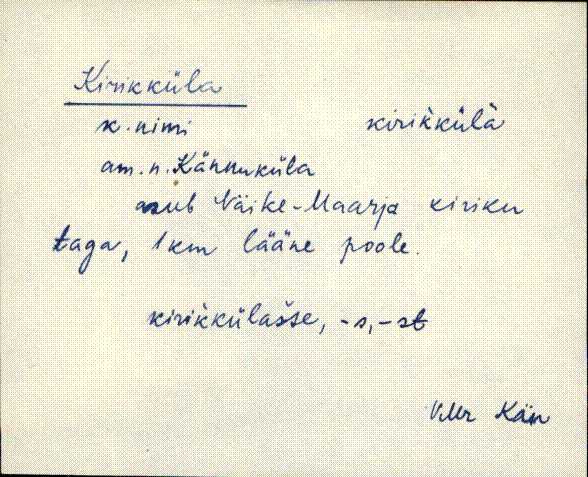 Kirikküla
k. nimi kirik̀külà
am. n. Kännuküla
asub Väike-Maarja kiriku
taga, 1 km lääne poole.
kirik̀külas̀se, -s, -st
V.Mr Kän